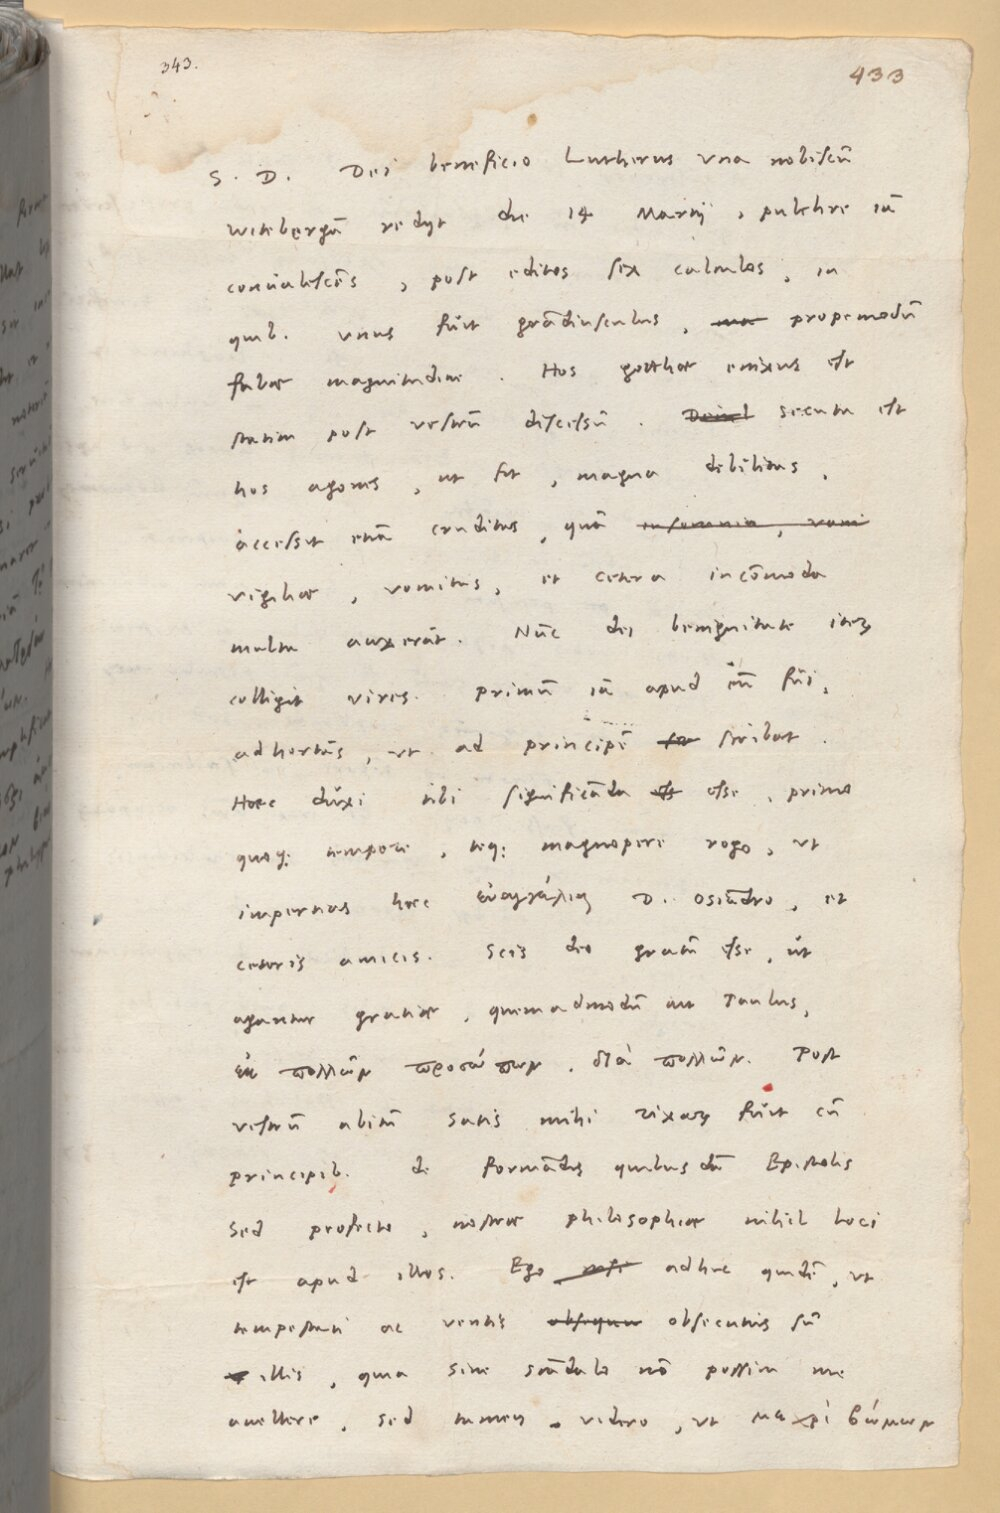 343.
433
S. D. Dei beneficio Lutherus vna nobiscū
witebergā redijt die 14 Martij, pulchre iā
conualescēs, post editos sex calculos, in
quib. vnus fuit grādiusculus, propemodū
fabae magnitudine. Hos gothae enixus est
statim post vestrū discessū. secuta est
hos agones, ut fit, magna debilitas,
accessit etiā cruditas, quā insomnia, vomi
vigiliae, vomitus, et cetera incōmoda
multa auxerāt. Nūc dei benignitate iterū
colligit vires. primū iā apud eū fui,
adhortās, vt ad principē scribat.
Haec duxi tibi significāda esse, primo
quoq; tempore, teq; magnopere rogo, vt
impertias haec εὐαγγέλια D. Osiādro, et
ceteris amicis. Scis deo gratū esse, ut
agantur gratiae, quemadmodū ait Paulus,
ἐκ πολλῶν προσώπων, διὰ πολλῶν. Post
vestrū abitū satis mihi rixarū fuit cū
principib. de formādis quibusdā Epistolis
Sed profecto, nostrae philosophiae nihil loci
est apud illos. Ego adhuc quidē, vt
tempestati ac ventis obsequor obsecutus sū
illis, quia sine scādalo nō possim me
auellere, sed tamen videro, vt μεχρὶ βωμῶν